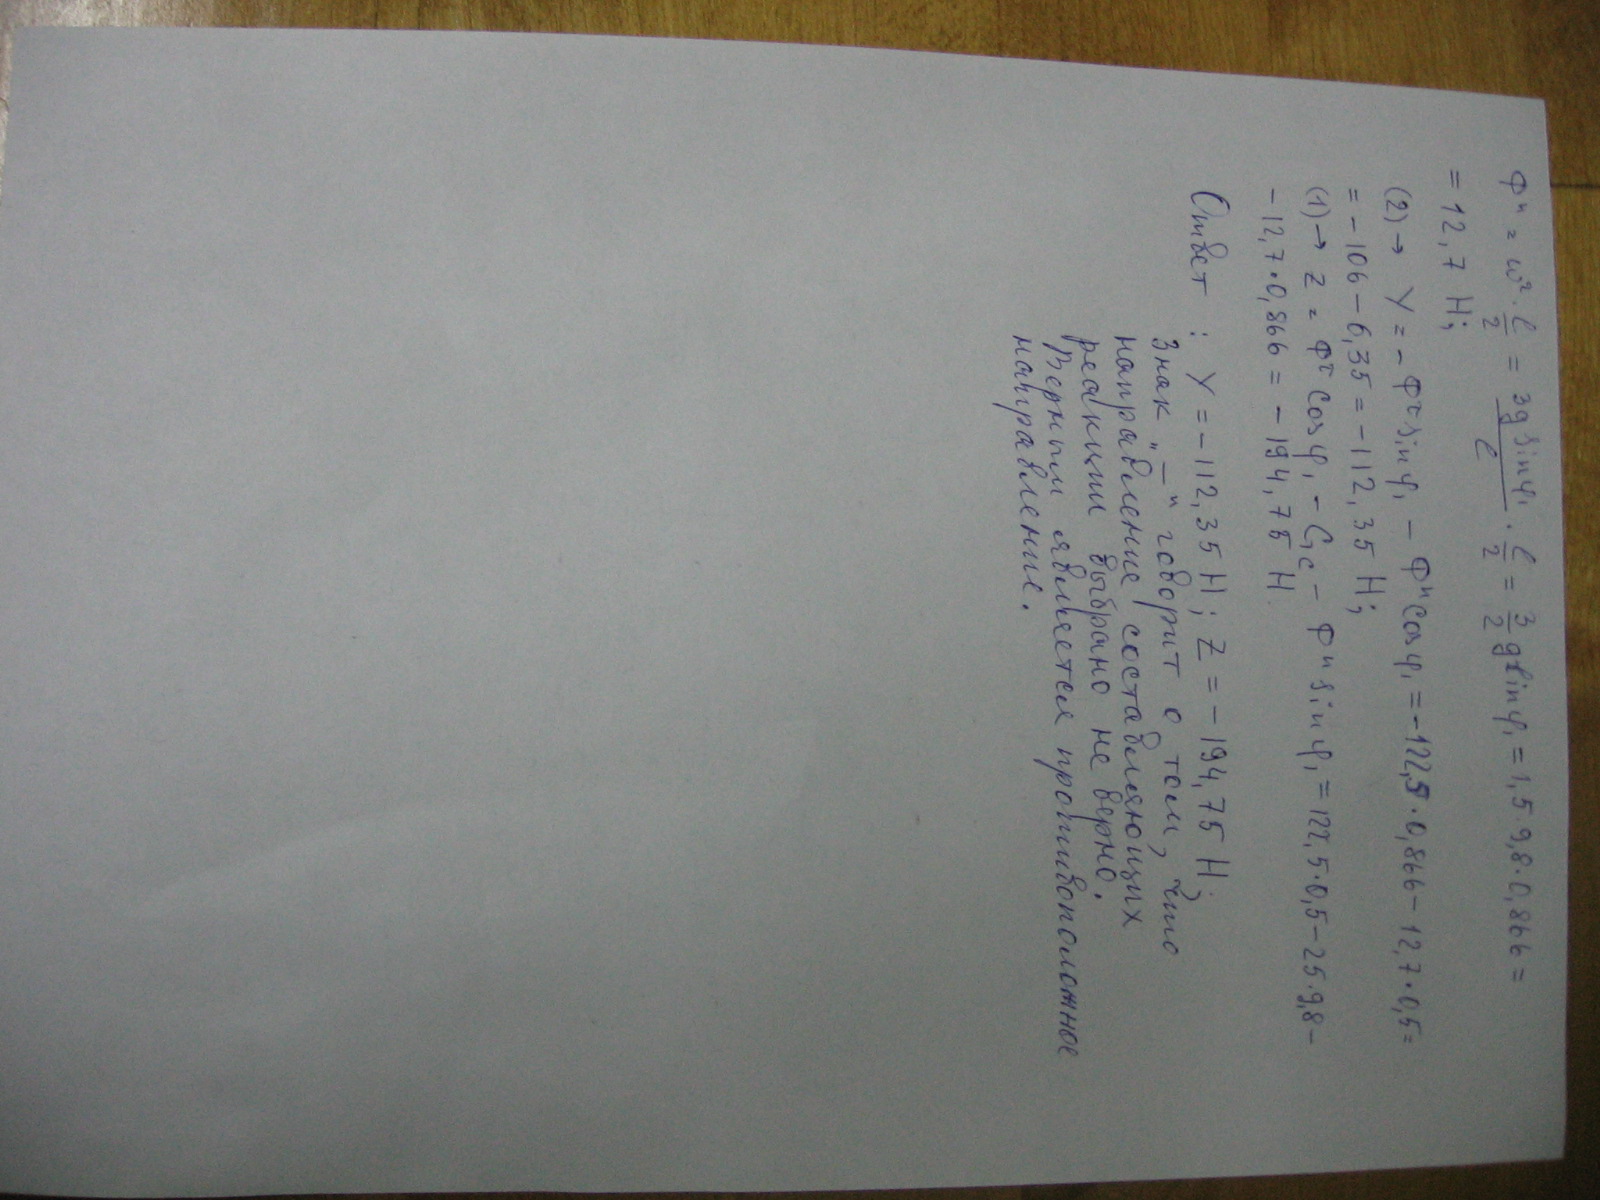 Фⁿ = ω² · l/2 = 3g sinφ₁/l · l/2 = 3/2 g sinφ₁ = 1,5 · 9,8 · 0,866 =
= 12,7 Н;
(2) → Y = - Ф^τ sinφ₁ - Фⁿ cosφ₁ = -122,5 · 0,866 - 12,7 · 0,5 =
= -106 - 6,35 = -112,35 Н;
(1) → Z = Ф^τ cosφ₁ - G_c - Фⁿ sinφ₁ = 122,5 · 0,5 - 25 · 9,8 -
-12,7 · 0,866 = -194,75 Н
Ответ : Y = -112,35 Н; Z = -194,75 Н;
Знак "—" говорит о том, что
направление составляющих
реакции выбрано не верно.
Верным является противоположное
направление.